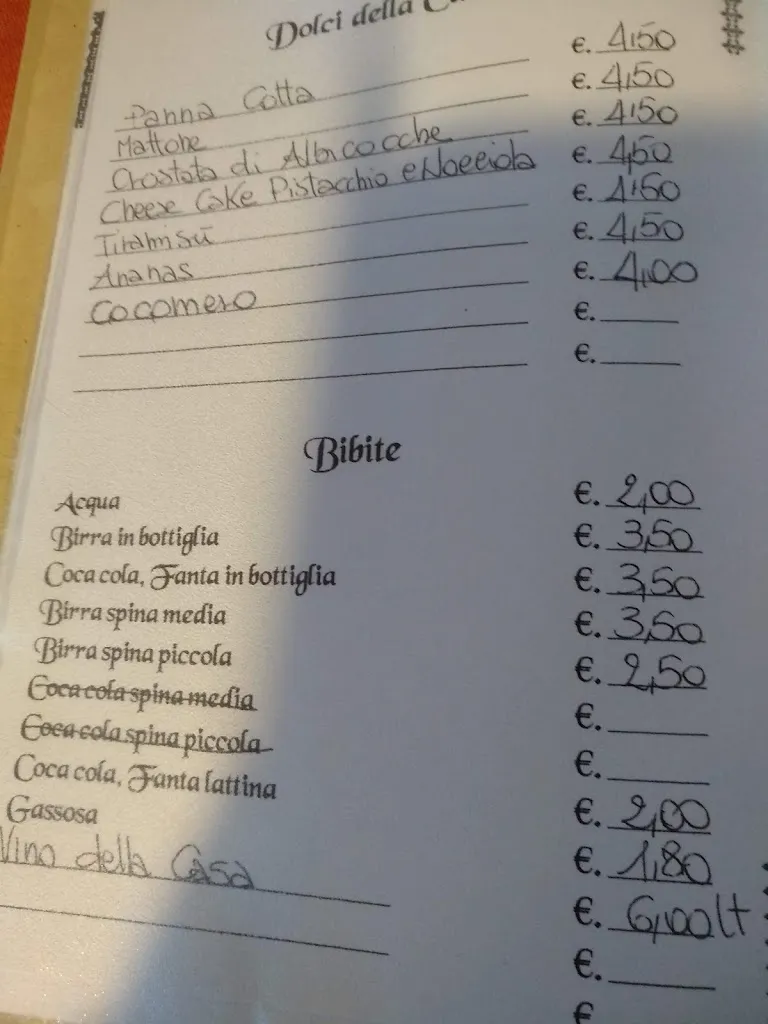 Dolci della
Panna Cotta €. 4,50
Mattone €. 4,50
Crostata di Albicocche €. 4,50
Cheese Cake Pistacchio e Nocciola €. 4,50
Tiramisù €. 4,50
Ananas €. 4,50
Cocomero €. 4,00
€.
€.
Bibite
Acqua €. 2,00
Birra in bottiglia €. 3,50
Coca cola, Fanta in bottiglia €. 3,50
Birra spina media €. 3,50
Birra spina piccola €. 2,50
Coca cola spina media €.
Coca cola spina piccola €.
Coca cola, Fanta lattina €. 2,00
Gassosa €. 1,80
Vino della Casa €. 6,00 lt
€.
€